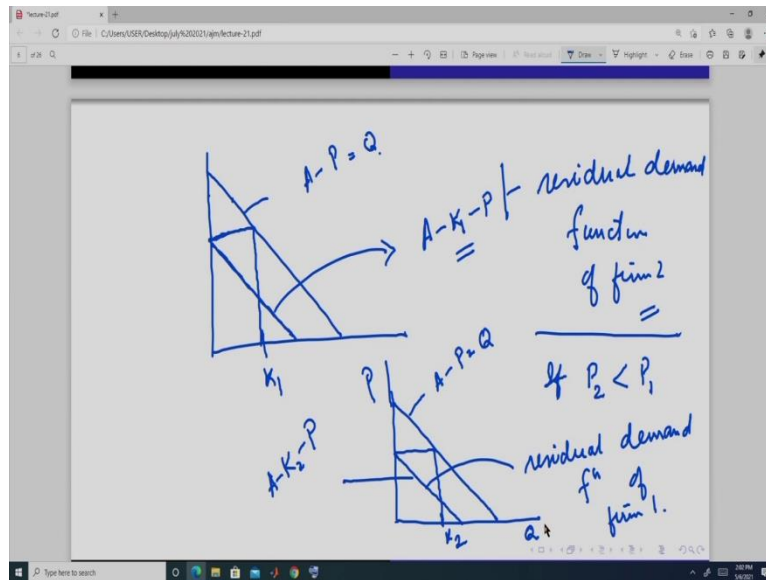 lecture-21.pdf
File | C:/Users/USER/Desktop/july%202021/ajm/lecture-21.pdf
6 of 26 Page view Read aloud Draw Highlight Erase
A-P=Q.
A-K₁-P residual demand
function
of firm 2
K₁
If P₂ < P₁
P
A-P=Q
A-K₂-P
residual demand
fⁿ of
firm 1.
K₂
Q
Type here to search
2:02 PM
5/6/2021